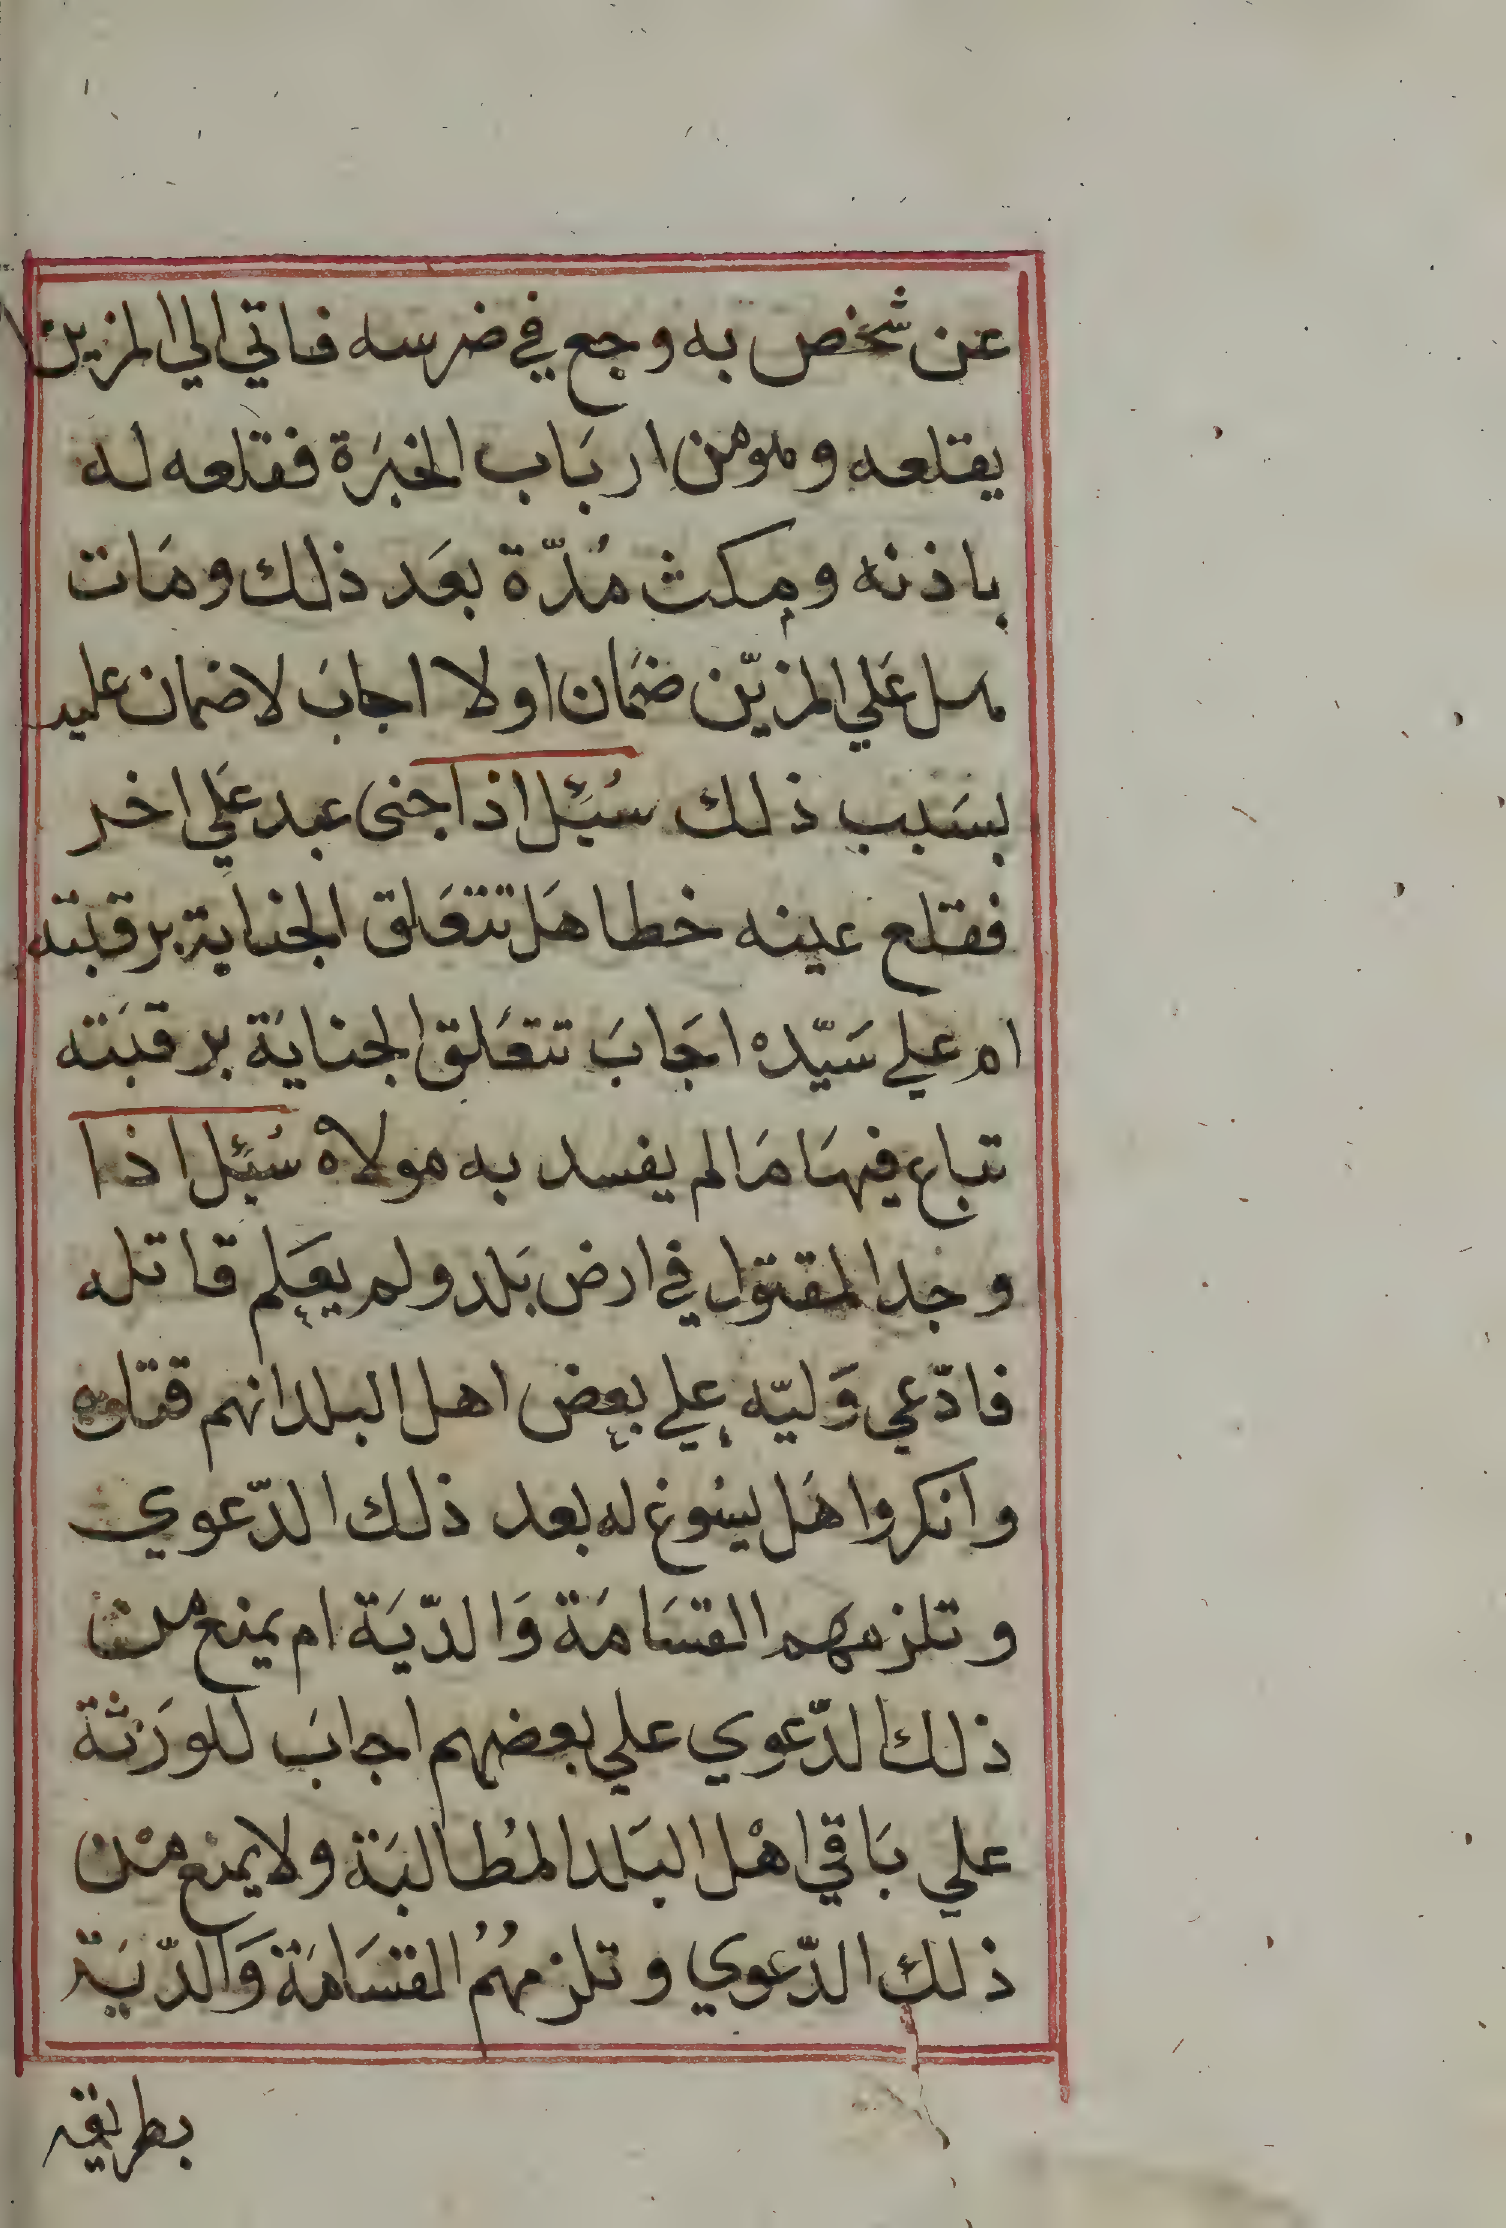 عن شخص به وجع في ضرسه فاتي الي المزين
يقلعه وهو من ارباب الخبرة فقلعه له
باذنه ومكث مُدّة بعَد ذلك ومَات
هل عَلي المزيّن ضمَان اولا اجابَ لا ضمان عليه
بسَبب ذلك سُئِل اذا جنى عبد عَلي اخر
فقلع عينه خطا هَل تتعَلق الجناية برقبته
ام علي سَيّده اجَابَ تتعَلق الجنايَة برقبَته
تباع فيهَا مَا لم يفسد به مولاه سُئِل اذا
وجد المقتول في ارض بَلد ولم يعَلم قاتله
فادّعي وَليّه علي بعض اهل البلد انهم قتلوه
وانكروا هَل يسُوغ له بعد ذلك الدّعوي
وتلزمهم القسَامَة وَالدّيَة ام يمنع من
ذلك الدّعوي علي بعضهم اجابَ للورَثة
علي بَاقي اهْل البَلد المُطالبَة ولا يمنع مْن
ذلك الدّعوي وتلزمهُمُ القسَامَة وَالدّيَة
بطريقه